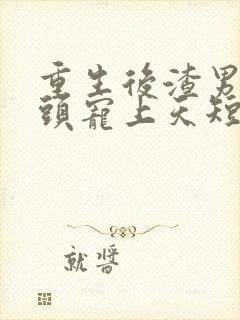 重生後渣男
頭寵上天短
就醬